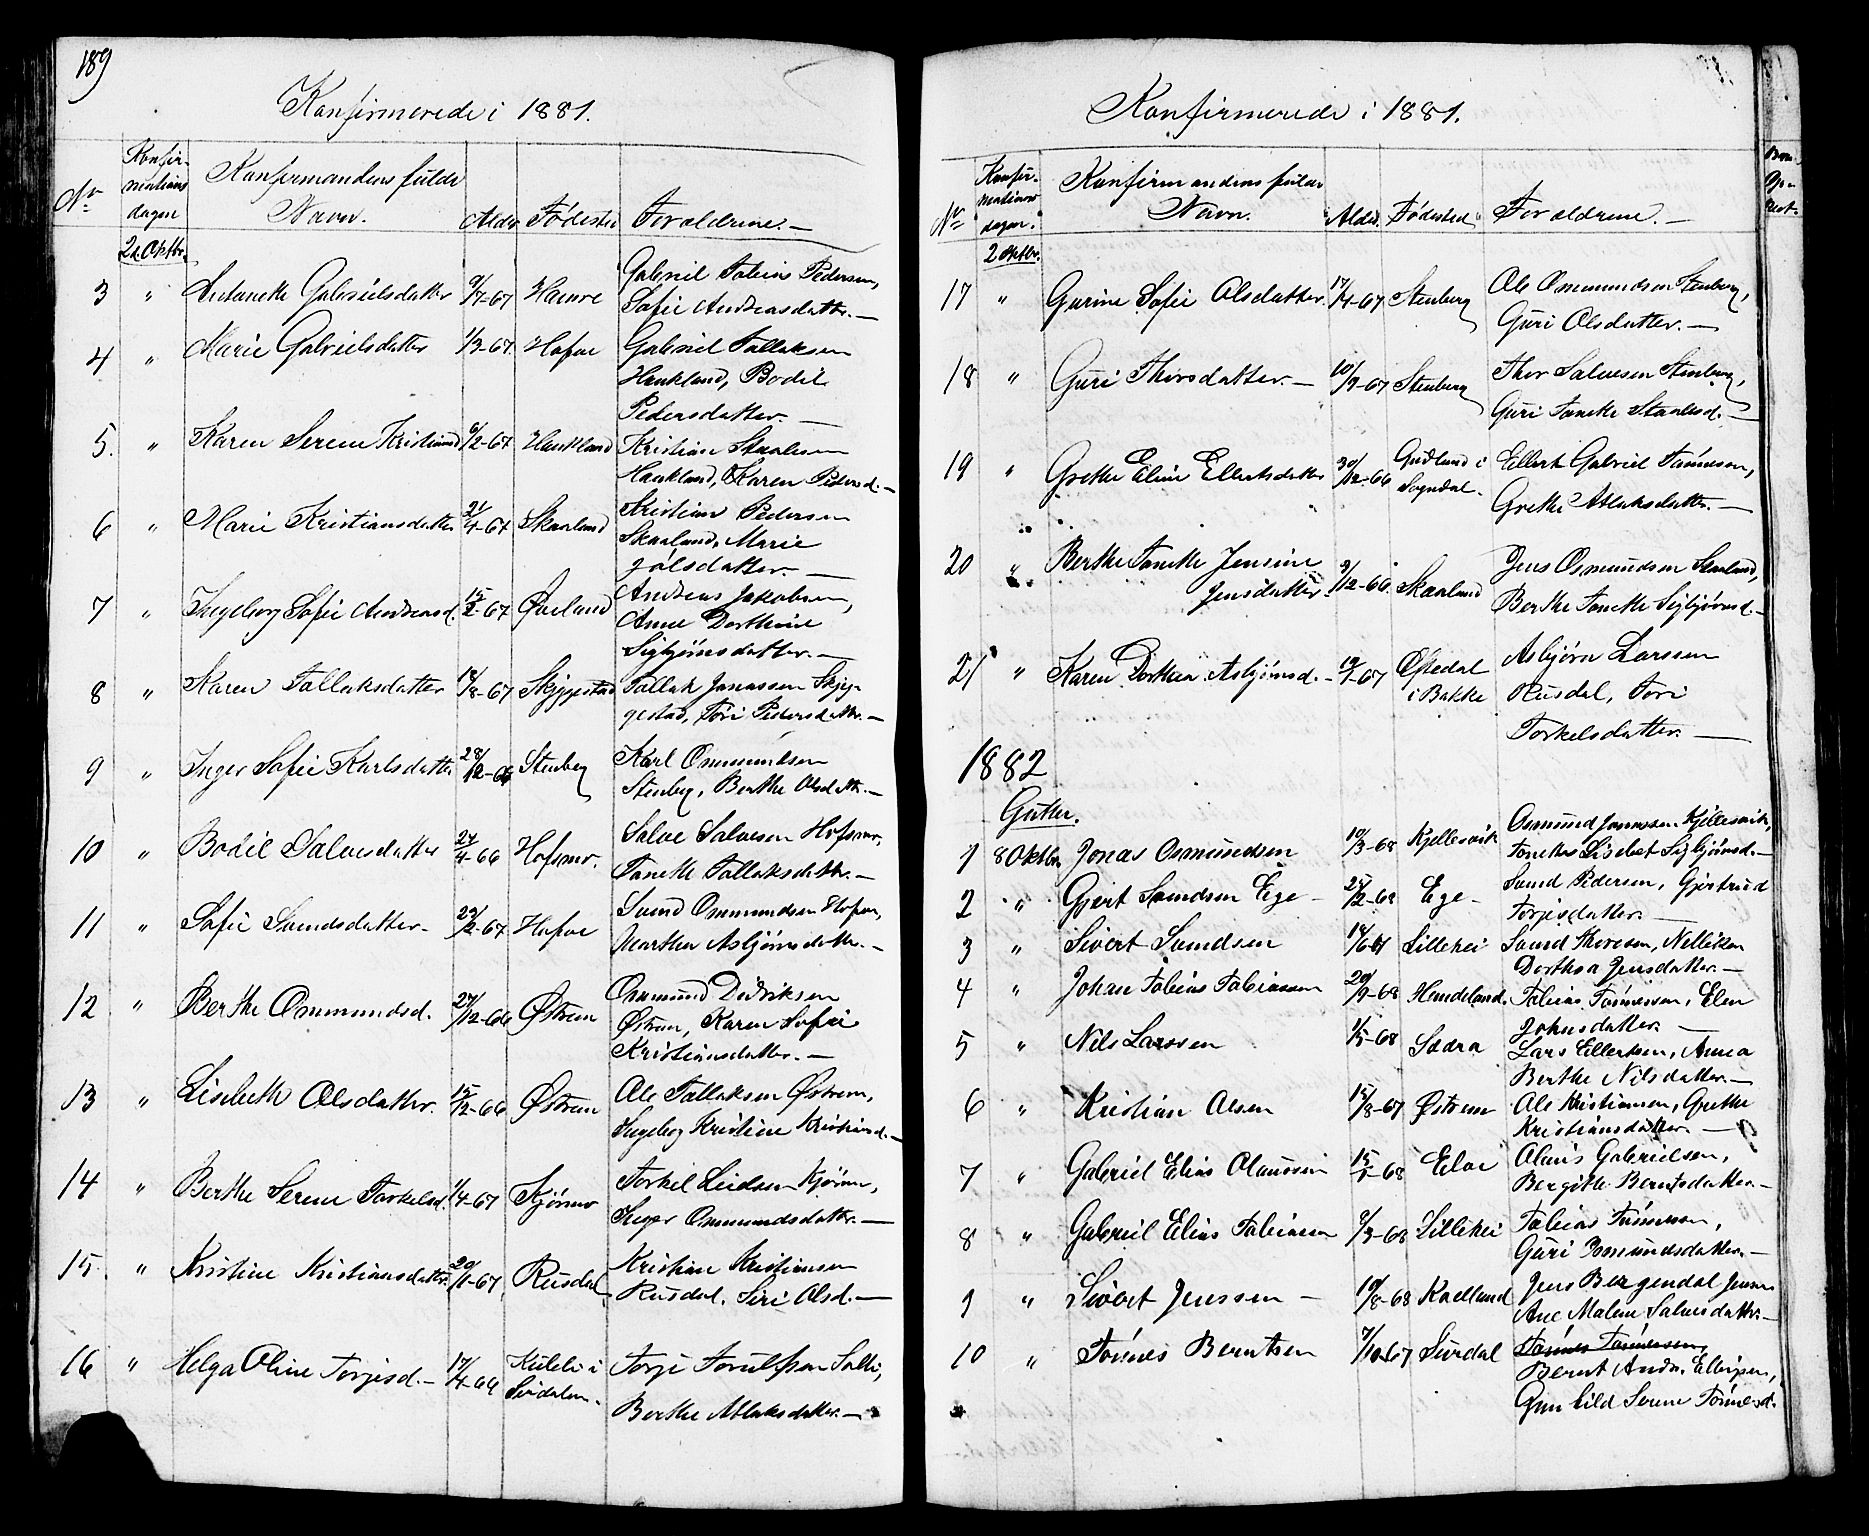 189
Konfirmerede i 1881.
No Konfirmationsdagen Konfirmandens fulde Navn. Alder Fødested Forældrene.—
2den Oktbr.
3 " Antonette Gabrielsdatter 9/7-67 Haure Gabriel Tobias Pedersen,
Sofie Andreasdattr.—
4 " Marie Gabrielsdatter 1/3-67. Hofoe Gabriel Tallaksen
Haukland, Bodil
Pedersdatter.—
5. " Karen Serene Kristiansd 6/2-67 Haukland Kristian Staalesen
Haukland, Karen Pedersd.—
6 " Marie Kristiansdatter 21/4-67 Skaaland Kristian Pedersen
Skaaland, Marie
Jølsdatter.—
7 " Ingeborg Sofie Andreasd. 15/2-67 Øveland Andreas Jakobsen,
Anne Dorthine
Sigbjørnsdatter.—
8 " Karen Tallaksdatter 14/8-67 Skjggestad Tallak Jonassen Skjeg-
gestad, Tori Pedersdattr.—
9 " Inger Sofie Karlsdatter 28/12-66 Stenberg Karl Ommundsen
Stenberg, Berthe Olsdattr.—
10 " Bodil Salvesdatter 27/4-66 Hofsmo. Salve Salvesen Hofsmo,
Tonette Tallaksdattr.—
11 " Sofie Svendsdatter- 29/2-67 Hofoe Svend Ommundsen Hofoe,
Marthea Asbjørnsdattr.—
12 " Berthe Ommundsd. 27/12-66 Østrem Ommund Didriksen
Østrem, Karen Sofie
Kristiansdatter.—
13 " Lisebeth Olsdatter. 15/12-66 Østrem Ole Tallaksen Østrem,
Ingeborg Kristine Kristiansd.—
14 " Berthe Serene Torkelsd. 1/4-67 Kjørmo Torkel Leidsen Kjørmo,
Inger Ommundsdattr.—
15. " Kristine Kristiansdatter 20/11-67 Rusdal Kristian Kristiansen
Rusdal, Siri Olsd.—
16 " Helga Oline Torjisd.— 17/4-66 i
Sirdalen. Torje
Berthe Atlaksdatter.—
Konfirmerede i 1881.
No Konfirmationsdagen. Konfirmandens fulde Navn. Alder. Fødested Forældrene.—
2 Oktbr.
17 " Gurine Sofie Olsdatter. 17/4-67 Stenberg Ole Ommundsen Stenberg,
Guri Olsdatter.—
18 " Guri Thorsdatter.— 10/7-67 Stenberg Thor Salvesen Stenberg,
Guri Tonette Staalesd.—
19 " Grethe Eline Ellertsdatter 30/12-66 Gudlund i
Sogndal. Ellert Gabriel Tønnesen,
Grethe Atlaksdattr.—
20 " Berthe Tonette Jensine
Jensdatter 3/12-66. Skaaland Jens Osmundsen Skaaland,
Berthe Tonette Sigbjørnsd.—
21 " Karen Dorthea Asbjørnsd.- Øksedal
i Bakke Asbjørn Larssen
Rusdal, Tori
Torkelsdatter.—
1882
Gutter.
1 8 Oktbr. Jonas Osmundsen 10/3-68 Kjellesvik Osmund Jonassen Kjellesvik,
Tonette Lisebet Sigbjørnsd.—
2 " Gjert Svendsen Ege - 25/2-68 Ege- Svend Pedersen, Gjertrud
Torjisdatter.—
3 " Sivert Svendsen Lillehei Svend Thoresen, Nellikken
Dorthea Jensdatter.—
4 " Johan Tobias Tobiassen 20/9-68 Hendeland. Tobias Tønnessen, Elen
Johnsdatter.—
5 " Nils Larssen 1/5-68 Sædra Lars Ellertsen, Anna
Berthe Nilsdatter.—
6 " Kristian Olsen 15/8-67 Østrem Ole Kristiansen, Grethe
Kristiansdatter.—
7 " Gabriel Elias Olaussen 15/5-68 Eiloe Olaus Gabrielsen,
Bergithe Berntsdatter.—
8 " Gabriel Elias Tobiassen 9/3-68 Lillehei Tobias Tønnessen,
Guri Osmundsdatter.—
9 " Sivert Jenssen - 19/8-68 Kaelland Jens Bergendal Jensen
Ane Malene Salvesdatter—
10 " Tønnes Berntsen 7/10-67 Surdal Tønnes Tønnessen,
Bernt Andr. Ellingsen,
Gunhild Serene Tønnesd.